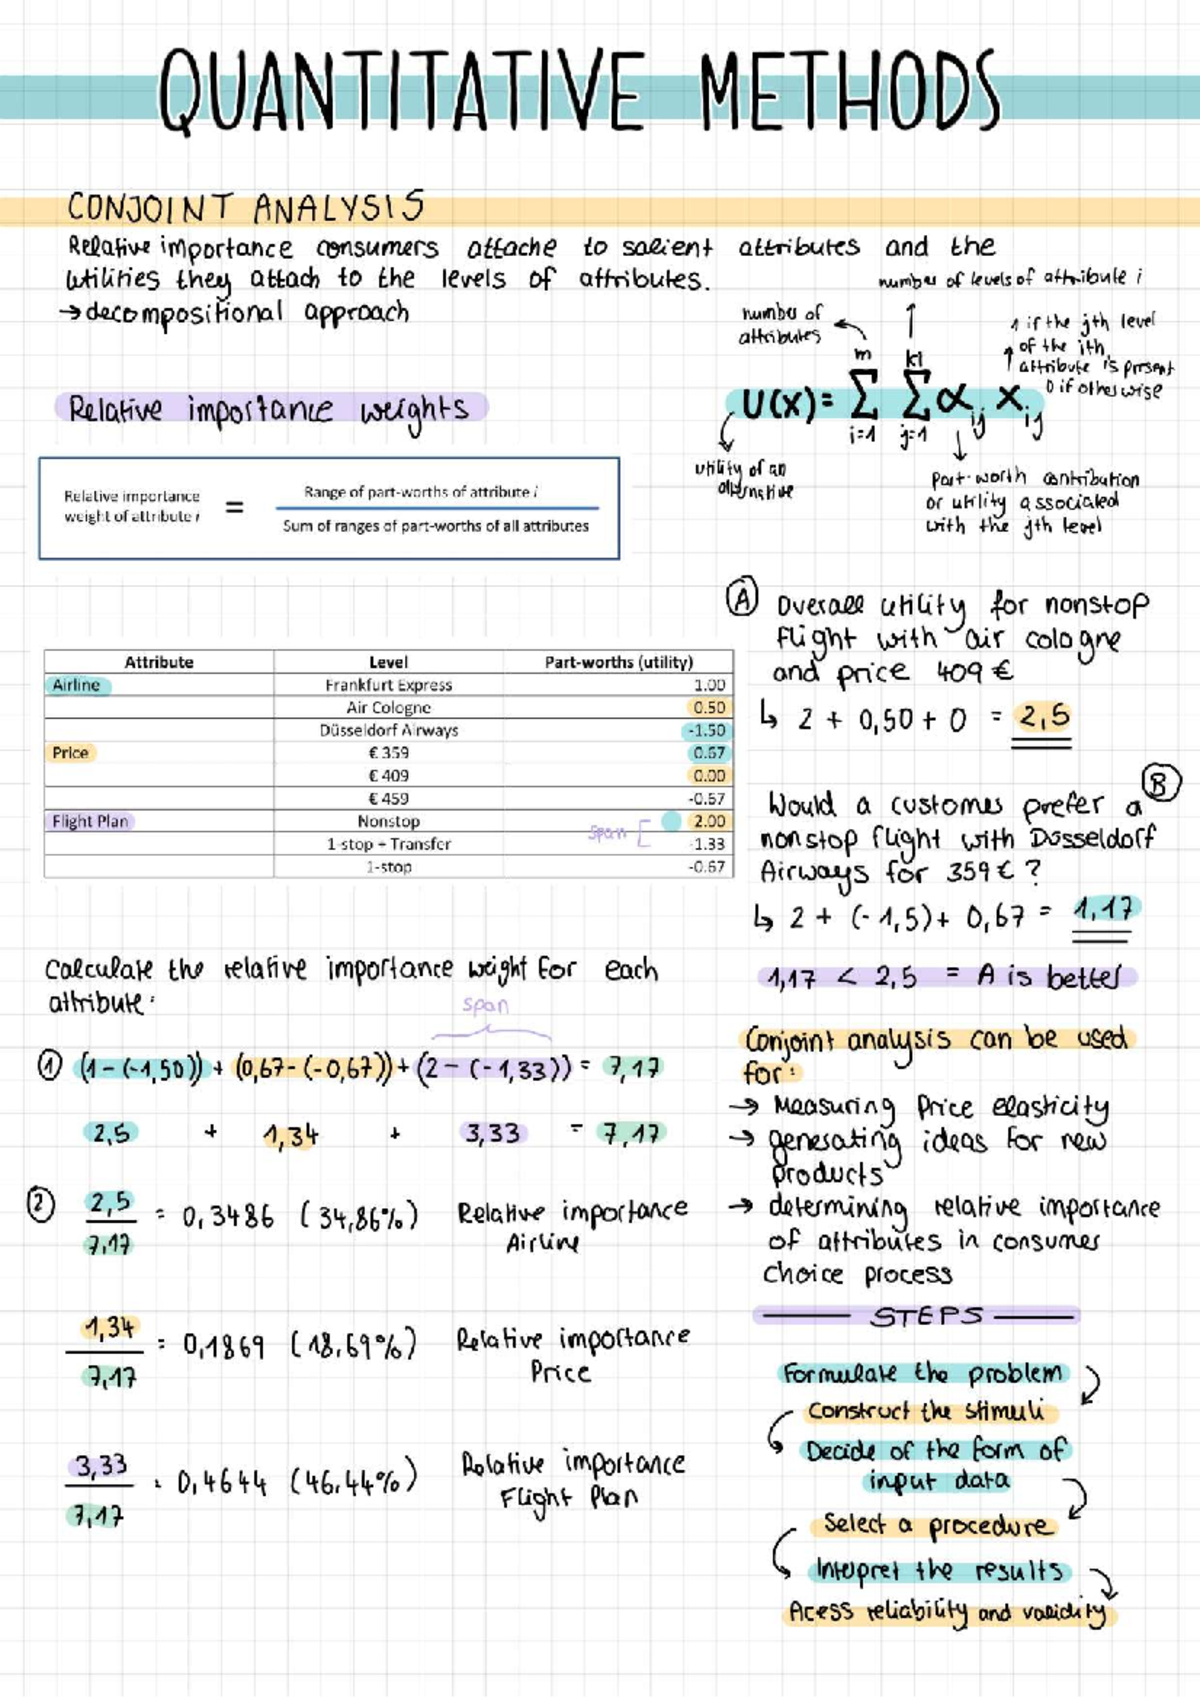 QUANTITATIVE METHODS
CONJOINT ANALYSIS
Relative importance consumers attache to salient attributes and the
utilities they attach to the levels of attributes.
→ decompositional approach
number of levels of attribute i
number of
attributes
1 if the jth level
of the ith
attribute is present
0 if otherwise
m ki
U(X) = Σ Σ α ij x ij
i=1 j=1
utility of an
alternative
part-worth contribution
or utility associated
with the jth level
Relative importance weights
Relative importance
weight of attribute i
=
Range of part-worths of attribute i
Sum of ranges of part-worths of all attributes
Attribute Level Part-worths (utility)
Airline Frankfurt Express 1.00
Air Cologne 0.50
Düsseldorf Airways -1.50
Price € 359 0.67
€ 409 0.00
€ 459 -0.67
Flight Plan Nonstop 2.00
span [
1-stop + Transfer -1.33
1-stop -0.67
A Overall utility for nonstop
flight with air cologne
and price 409 €
↳ 2 + 0,50 + 0 = 2,5
B
Would a customer prefer a
nonstop flight with Düsseldorf
Airways for 359 € ?
↳ 2 + (-1,5) + 0,67 = 1,17
1,17 < 2,5 = A is better
Calculate the relative importance weight for each
attribute:
span
① (1 - (-1,50)) + (0,67 - (-0,67)) + (2 - (-1,33)) = 7,17
2,5 + 1,34 + 3,33 = 7,17
② 2,5
7,17
= 0,3486 (34,86%) Relative importance
Airline
1,34
7,17
= 0,1869 (18,69%) Relative importance
Price
3,33
7,17
= 0,4644 (46,44%) Relative importance
Flight Plan
Conjoint analysis can be used
for:
→ Measuring Price elasticity
→ generating ideas for new
products
→ determining relative importance
of attributes in consumer
choice process
STEPS
Formulate the problem
Construct the stimuli
Decide of the form of
input data
Select a procedure
Interpret the results
Acess reliability and validity